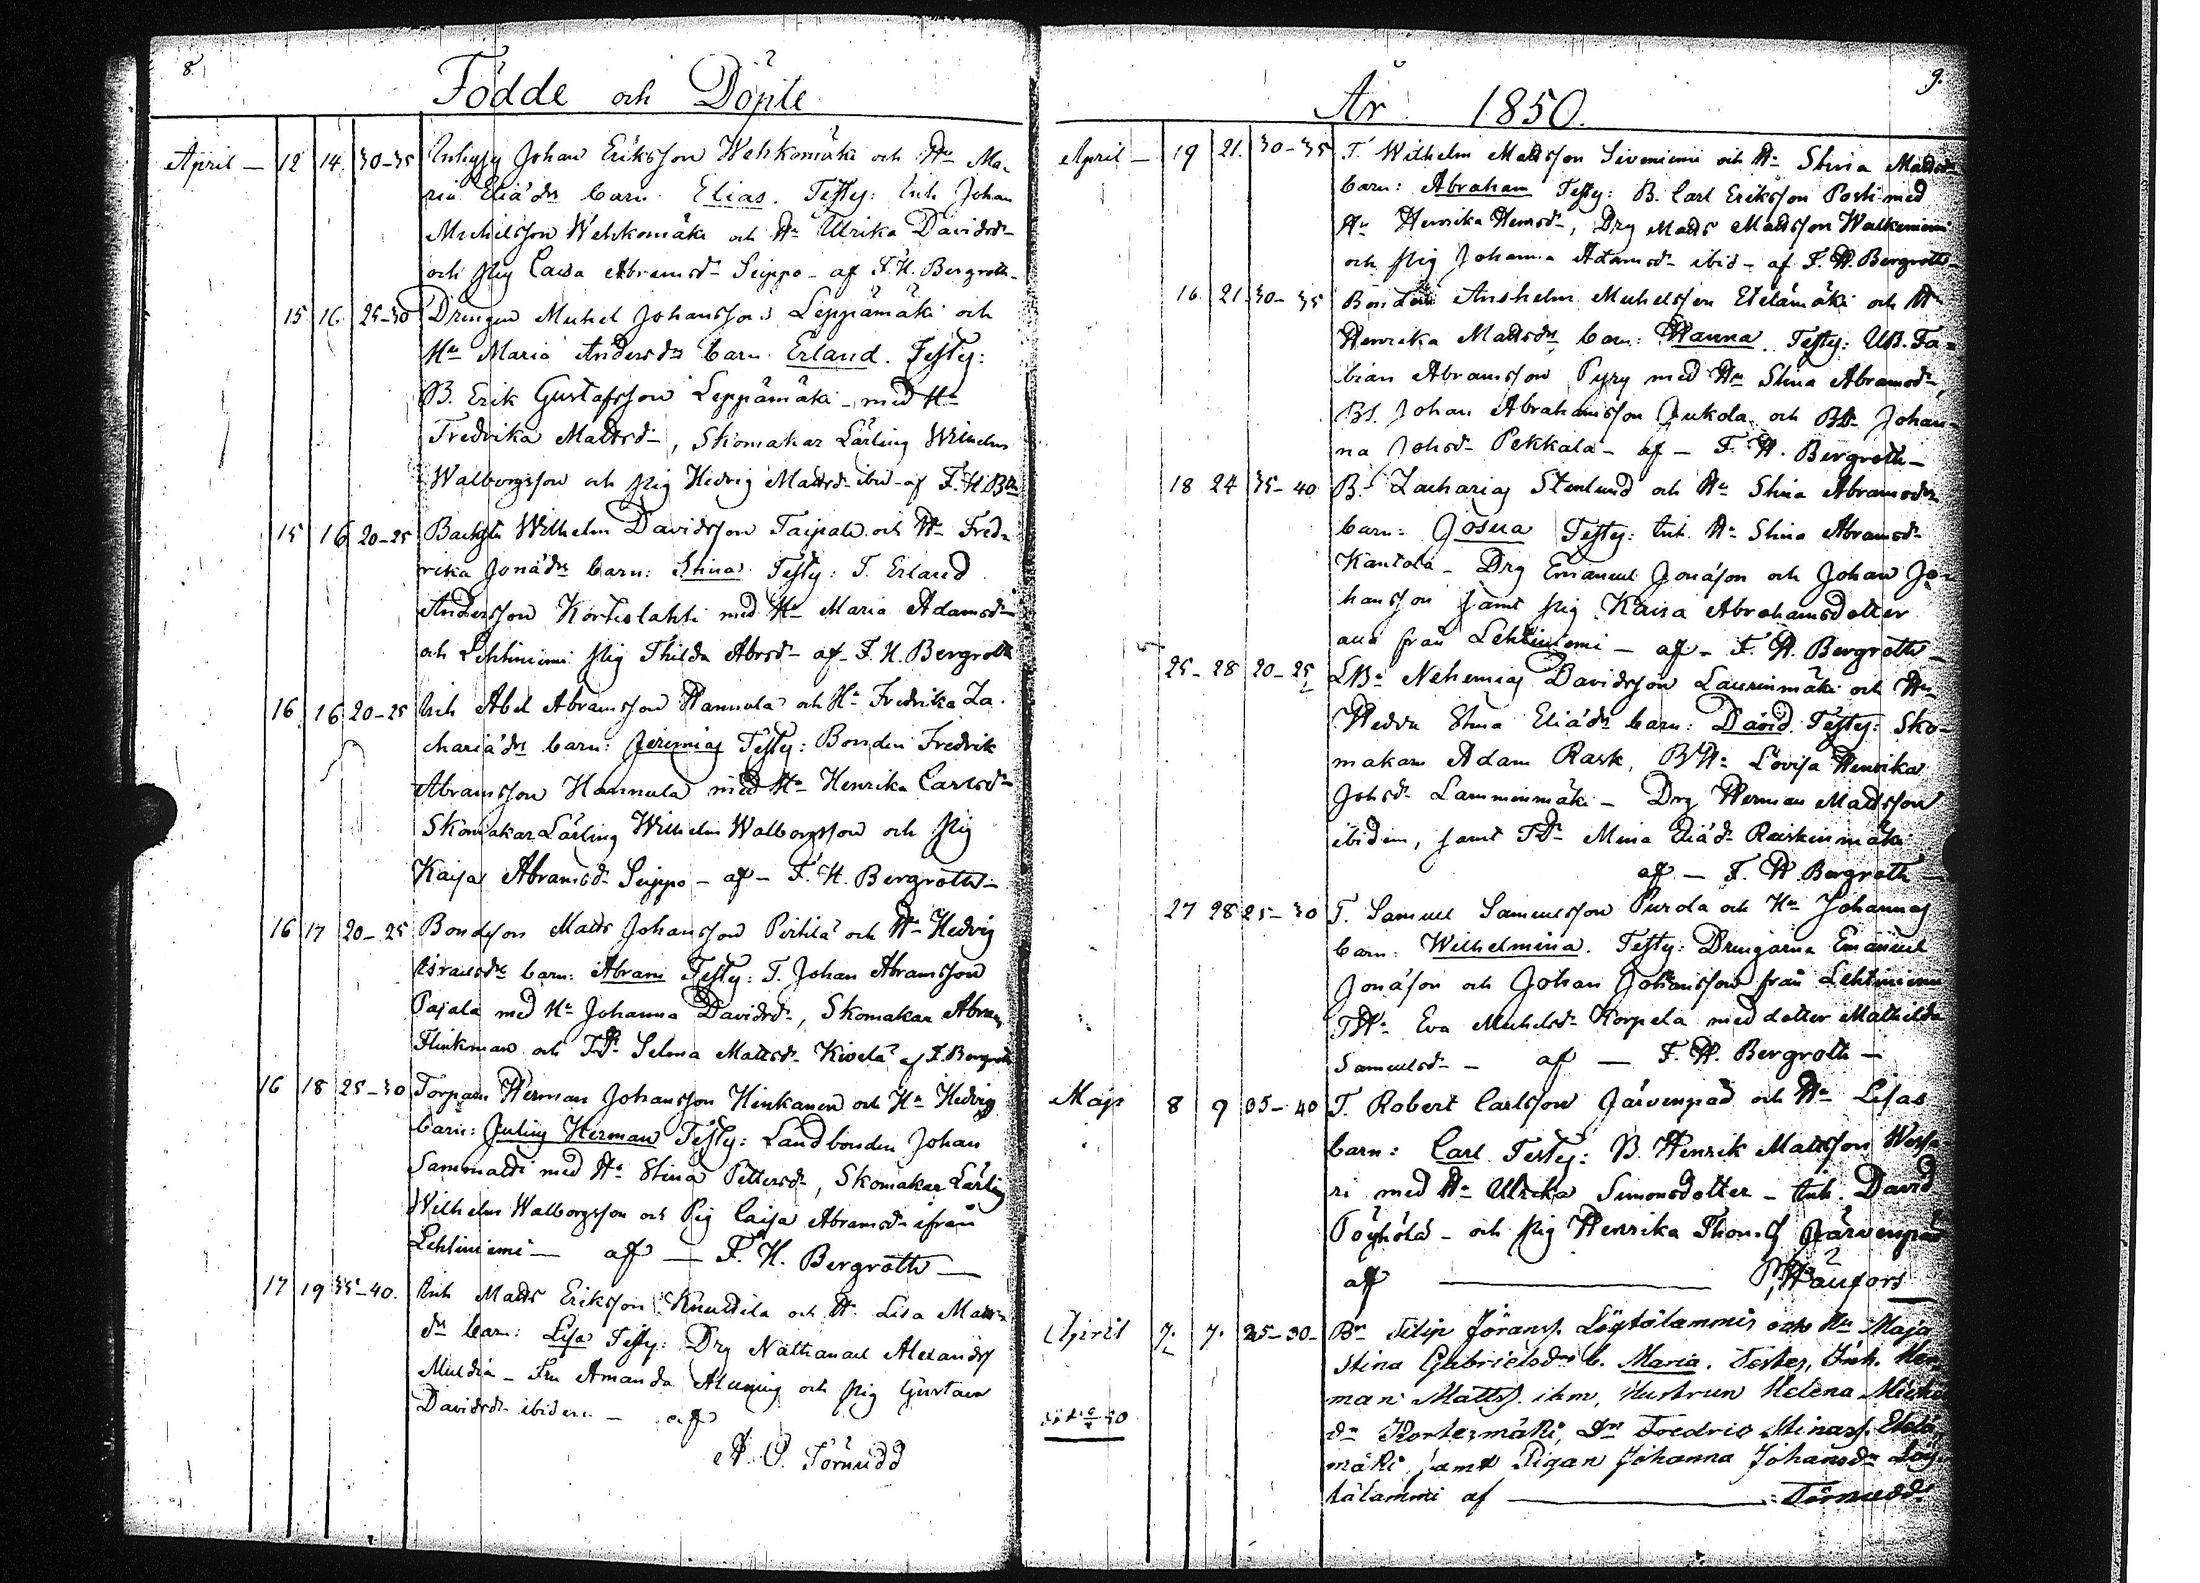 8.
Födde och Döpte
April — 12 14. 30-35 Inhyss Johan Eriksson Wehkomäki och Hu Ma-
ria Eliæds barn Elias. Testes: Inh Johan
Michelsson Wehkomäki och Hu Ulrika Davidsd-
och pig Caisa Abramsd- Seippo - af F. H. Bergroth-
15 16. 25-30 Drengen Michel Johanssons Leppämäki och
Hu Maria Andersds barn Erland. Testes:
B. Erik Gustafsson Leppämäki - med Hu
Fredrika Mattsd-, Skomakar Lärling Wilhelm
Walborgsson och pig Hedvig Mattsd- ibid - af F. H. Bth
15 16 20-25 Wilhelm Davidsson Taipale och Hu Fred-
rika Jonæds barn: Stina Testes: T. Erland
Andersson Korteslahti med Hu Maria Adamsd-
och Lehtiniemi pig Thilda Abrsd- af - F. H. Bergroth
16 16 20-25 Inh Abel Abramsson Hannula och Hu Fredrika Za-
chariæds barn: Jeremias Testes: Bonden Fredrik
Abramsson Hannula med Hu Henrika Carlsd-
Skomakar Lärling Wilhelm Walborgsson och pig
Kajsa Abramsd- Seippo - af - F. H. Bergroth -
16 17 20-25 Bondeson Matts Johansson Pirtilä och Hu Hedvig
Israelsds barn: Abram Testes: T. Johan Abramsson
Pajala med Hu Johanna Davidsd-, Skomakar Abram
Flinkman och TD- Selma Mattsd- Kivelä af F. Bergroth
16 18 25-30 Torparn Herman Johansson Hinkanen och Hu Hedvig
barn: Julius Herman Testes: Landbonden Johan
Sammatti med Hu Stina Pettersd-, Skomakar Lärling
Wilhelm Walborgsson och Pig Caisa Abramsd- ifrån
Lehtiniemi — af — F. H. Bergroth —
17 19 35-40. Inh Matts Eriksson Knuttila och H- Lisa Matts-
ds barn: Lisa Testes: Drg Nathanael Alexandss
- Fru Amanda och pig Gustava
Davidsd- ibidem - af
A. O. Törnudd
9.
År 1850.
April — 19 21. 30-35 T. Wilhelm Mattsson Siveniemi och Hu Stina Mattsds
barn: Abraham Testes: B. Carl Eriksson Posti med
Hu Henrika Henrsd-, Drg Matts Mattsson Walkeniemi
och pig Johanna Adamsd- ibid - af F. H. Bergroth -
16. 21. 30-35 Bonden Anshelm Michelsson Etelämäki och Hu
Henrika Mattsds barn: Hanna. Testes: UB. Fa-
bian Abramsson Pyry med Hu Stina Abramsd-,
BS. Johan Abrahamsson Jukola och BD- Johan-
na Johsd- Pekkala - af - F. H. Bergroth -
18 24 35-40 B- Zacharias Stenlund och Hu Stina Abramsds
barn: Josua Testes: Inh. H- Stina Abramsd-
Kantola - Drg Emanuel Jonæson och Johan Jo-
hansson samt pig Kaisa Abrahamsdotter
alla från Lehtiniemi - af - F. H. Bergroth -
25- 28 20-25 LB- Nehemias Davidsson Laurinmäki och Hu
Hedda Stina Eliæds barn: David Testes: Sko-
makarn Adam Rask, BH- Lovisa Henrika
Johsd- Lamminmäki - Drg Herman Mattsson
ibidem, samt TD- Mina Eliæd- Raiskinmäki
af — F. H. Bergroth -
27 28 25-30 T. Samuel Samuelsson Purola och Hu Johannas
barn: Wilhelmina. Testes: Drengarna Emanuel
Jonæson och Johan Johansson från Lehtiniemi
TH- Eva Michelsd- Korpela med dotter Mathilda
Samuelsd- - af — F. H. Bergroth -
Maji 8 9 35-40 T. Robert Carlsson Järvenpää och Hu Lisas
barn: Carl Testes: B. Henrik Mattsson
ri med Hu Ulrika Simonsdotter - Inh. David
Pöyhölä - och pig Henrika Thom. d Järvenpää
af —
April 7. 7. 25-30- Bn Filip Jöranss. Löytölammis och Hu Maja
Stina Gabrielsds b. Maria. Testes, Inh. Her-
man Mattss. ibm, Hustrun Helena Mich-
dr Kortesmäki, Dr Fredric Minass. Etelä-
mäki, samt Pigan Johanna Johansdr Löy-
tälammi af — Törnudd